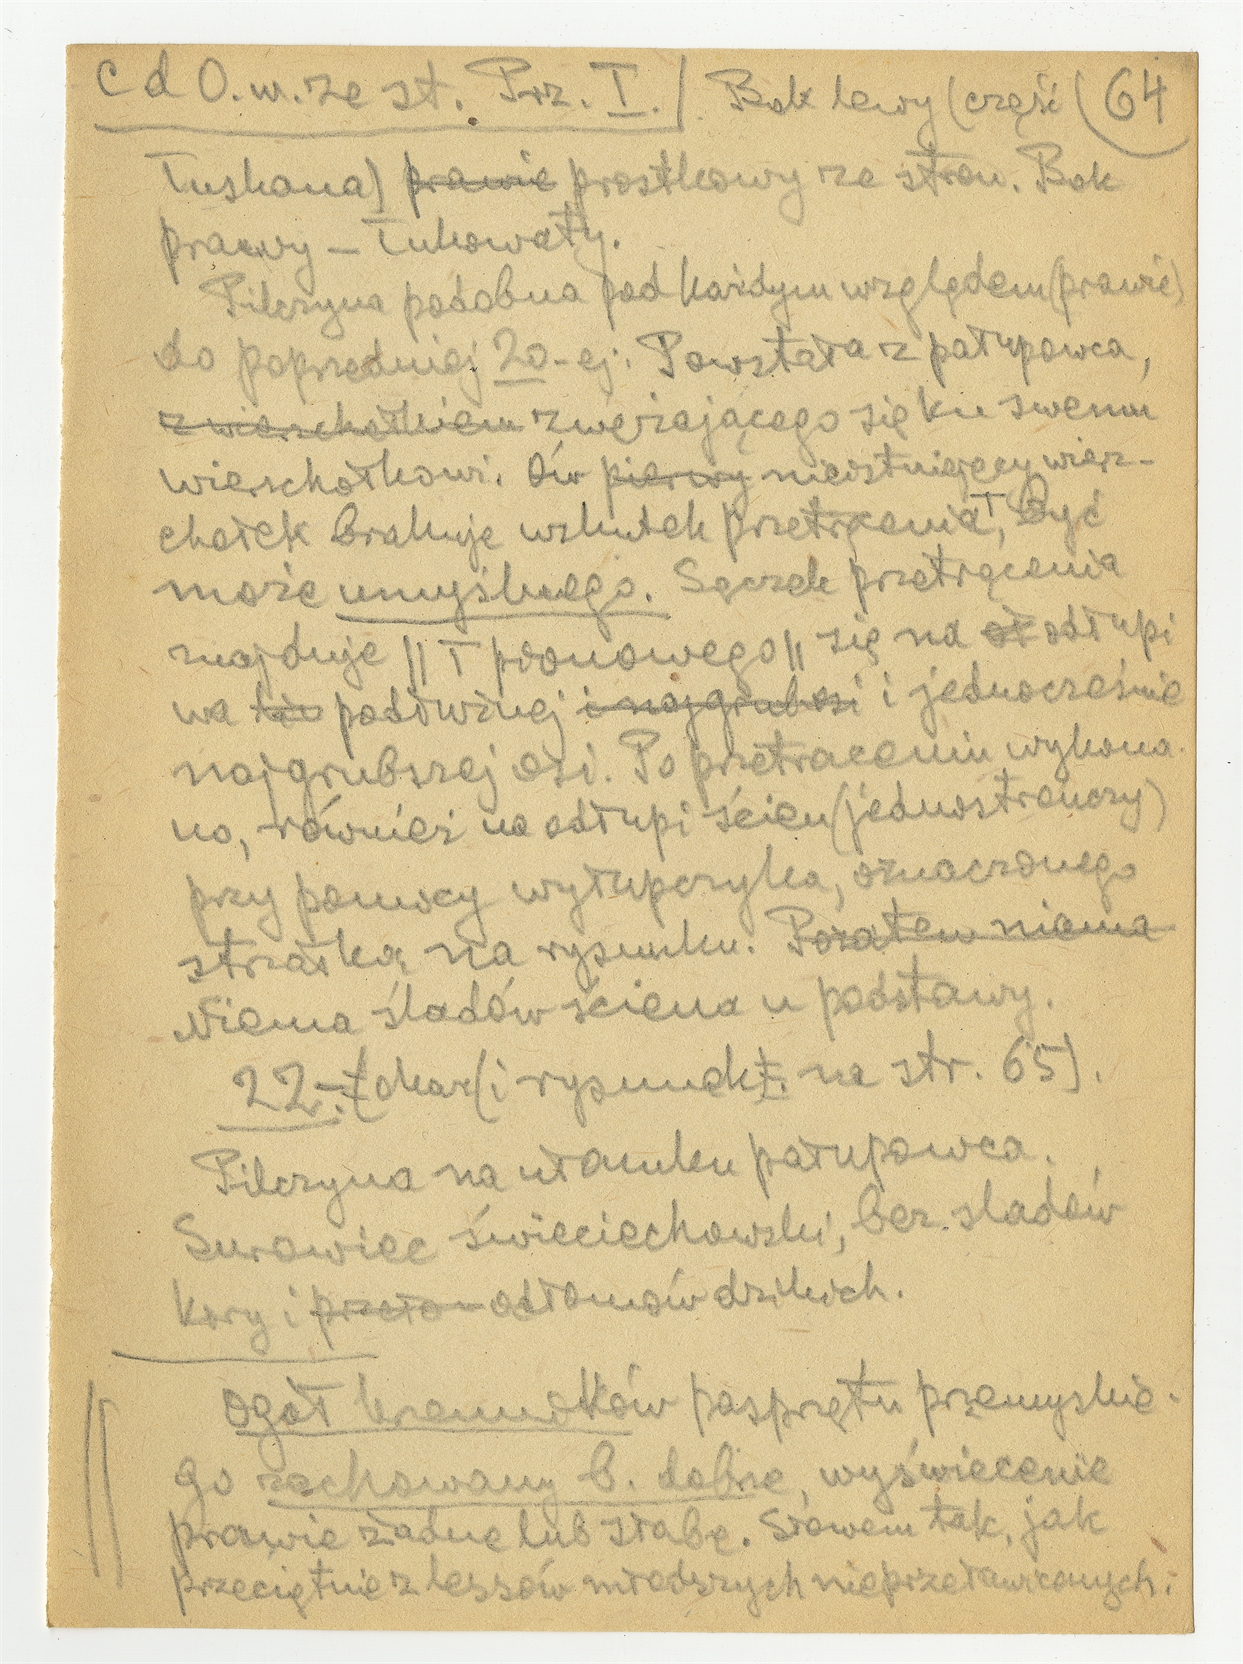 c d O. w. ze st. Prz. I. / Bok lewy (część (64
łuskana) prawie prostkowy ze stron. Bok
prawy – łukowaty.
Pilczyna podobna pod każdym względem (prawie)
do poprzedniej 20-ej. Powstała z półupowca,
z wierzchołkiem zwężającego się ku swemu
wierzchołkowi. Ów pierwy nieistniejący wierz-
chołek brakuje wskutek przetrącenia, być
może umyślnego. Sęczek przetrącenia
znajduje || T pionowego || się na odłupi
na podłużnej i najgrubszi i jednocześnie
najgrubszej osi. Po przetrąceniu wykona-
no, również na odłupi ścien (jednostronczy)
przy pomocy wyłupczyka, oznaczonego
strzałką na rysunku. Pozatem niema
Niema śladów ściena u podstawy.
22. (okaz (i rysunek na str. 65).
Pilczyna na ułamku półupowca.
Surowiec świeciechowski, bez śladów
kory i odłomów dzikich.
Ogół krzemuków pasprzętu przemyskie-
go zachowany b. dobrze, wyświecenie
prawie żadne lub słabe. Słowem tak, jak
przeciętnie z lessów młodszych nieprzeławiconych i